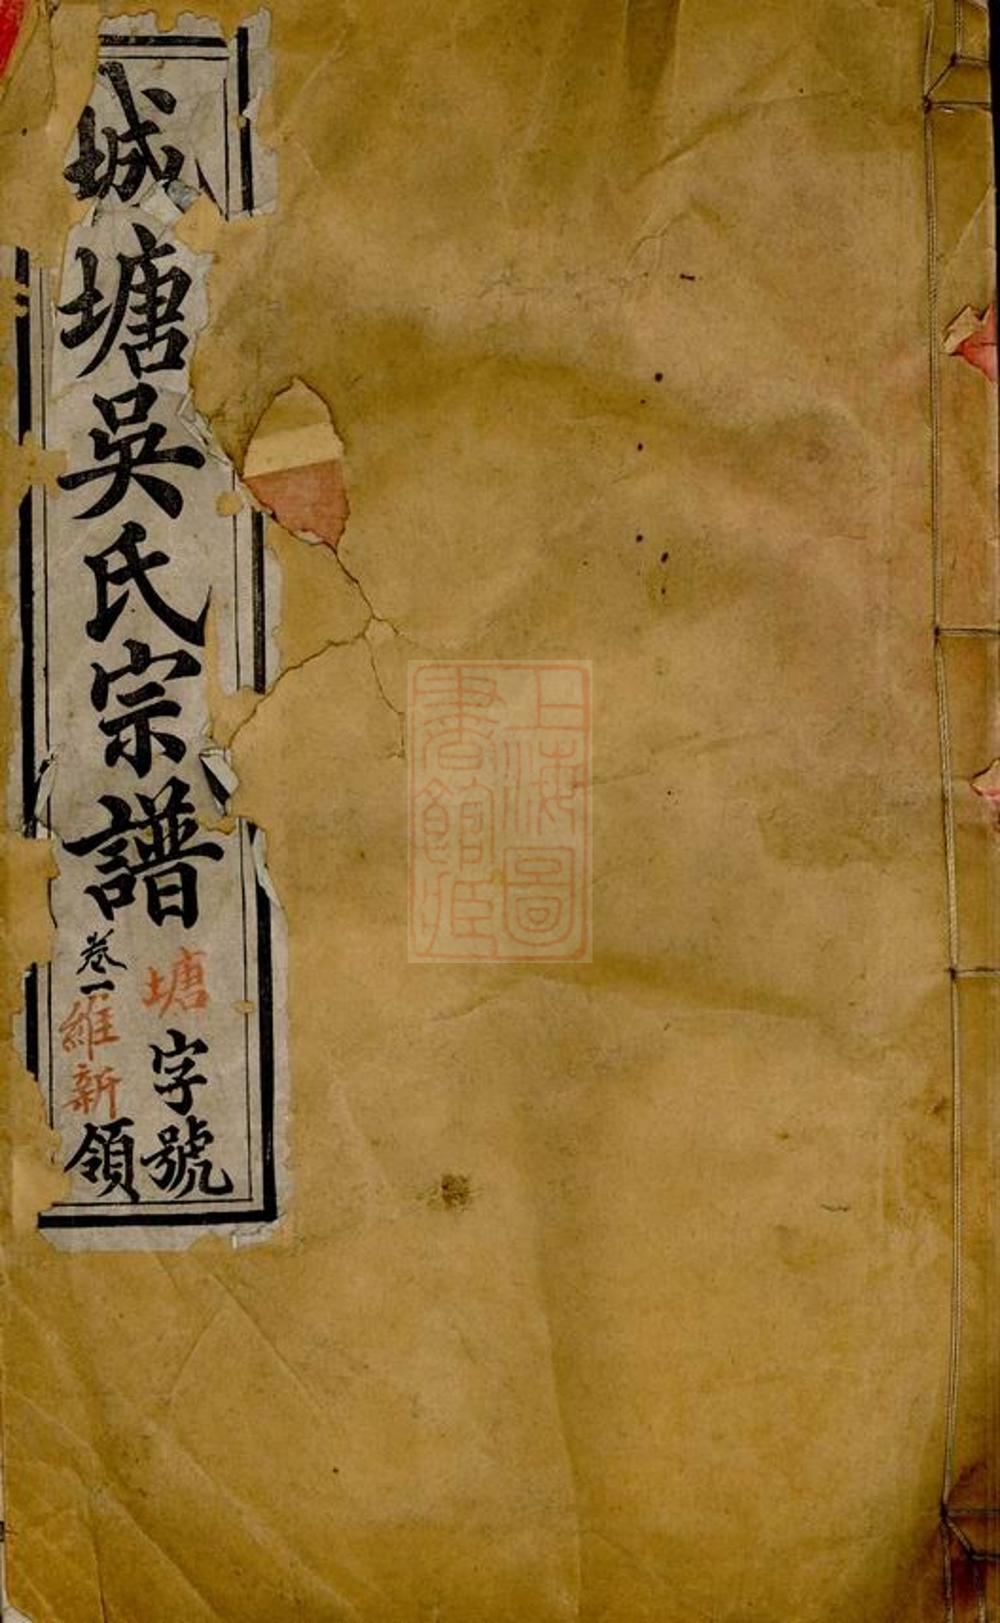 城塘吳氏宗譜
卷一
塘字號
維新領
上海圖
書館藏